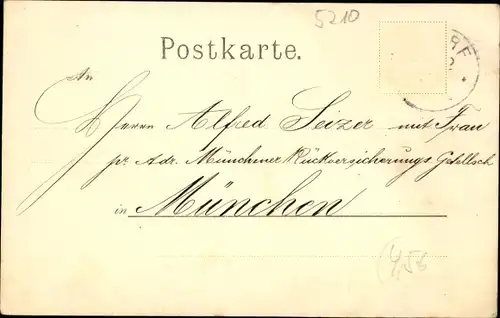 5210
Postkarte.
An
Herrn Alfred Seizer mit Frau
pr. Adr. Münchner Rückversicherungs Gesellsch
in München